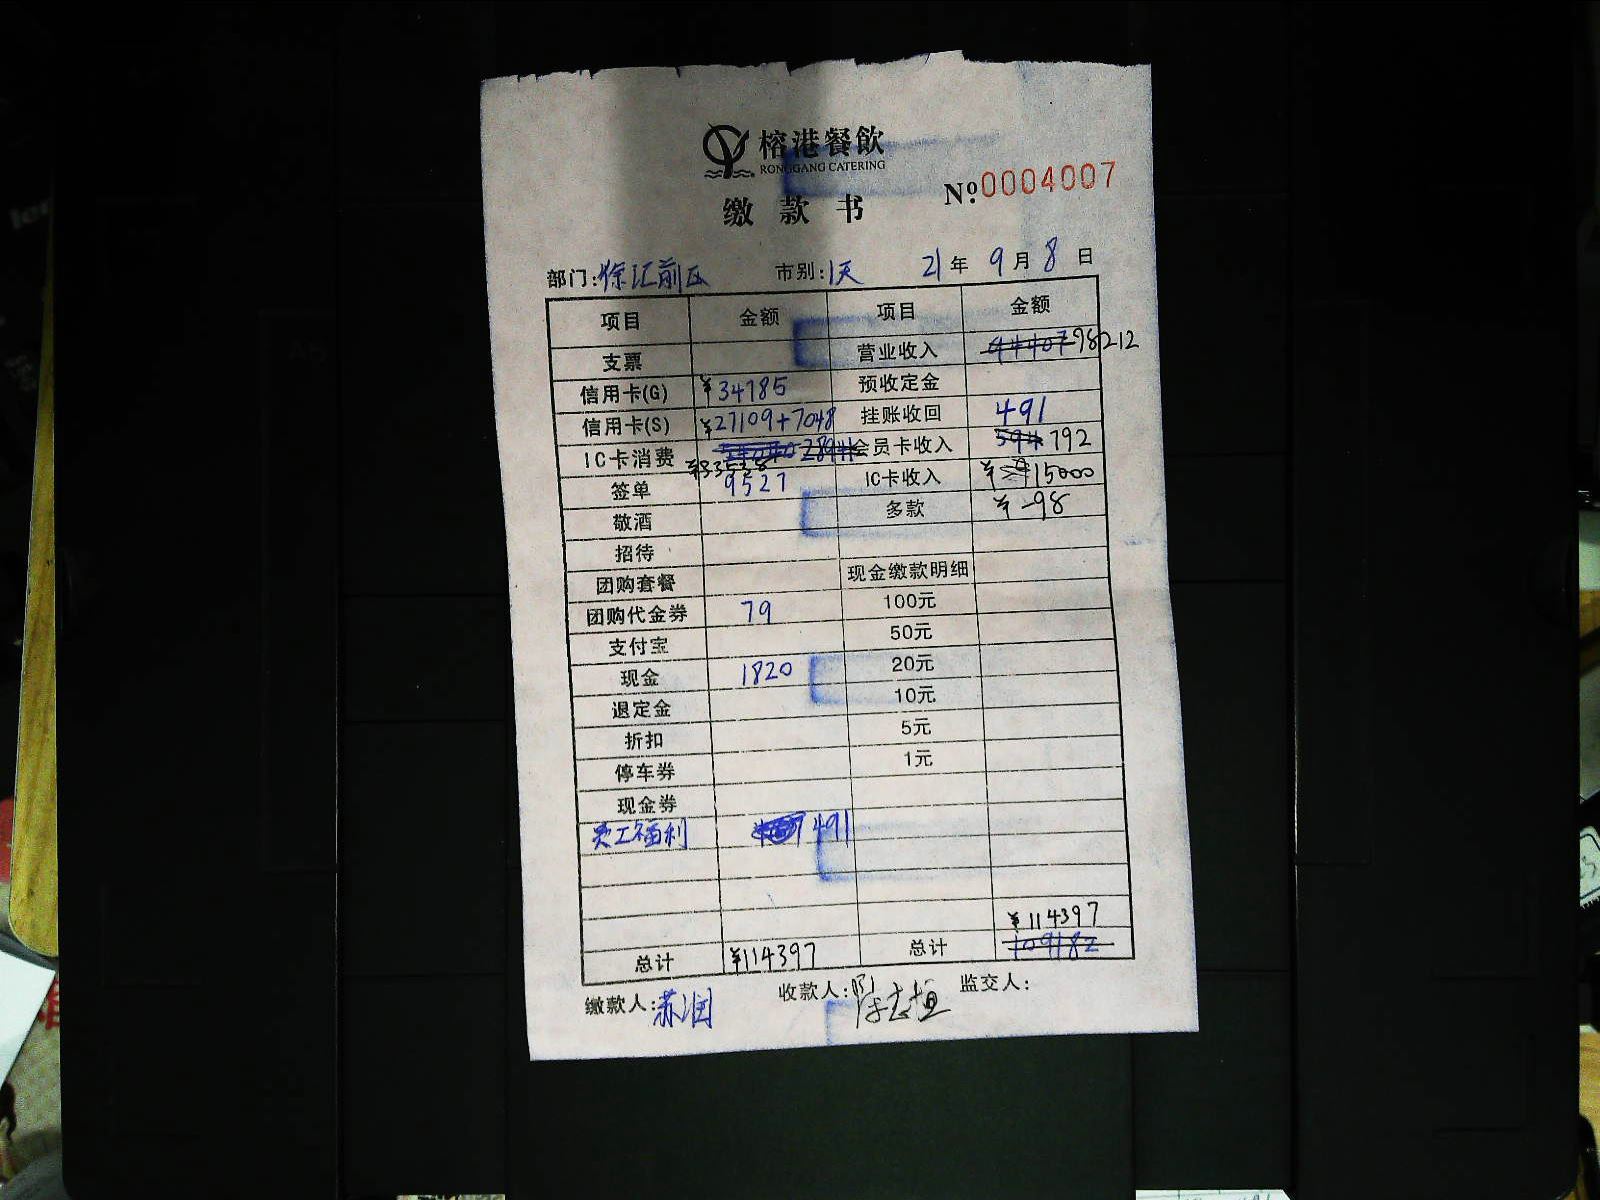 榕港餐飲
RONGGANG CATERING
缴款书
№0004007
部门:徐汇前区 市别:1天 21年9月8日
项目 金额 项目 金额
支票 营业收入 98212
信用卡(G) ¥34785 预收定金
信用卡(S) ¥27109+7048 挂账收回 491
IC卡消费 ¥33538 会员卡收入 792
签单 9527 IC卡收入 ¥15000
敬酒 多款 ¥-98
招待
团购套餐 现金缴款明细
团购代金券 79 100元
支付宝 50元
现金 1820 20元
退定金 10元
折扣 5元
停车券 1元
现金券
员工福利 491
¥114397
总计 ¥114397 总计 109182
缴款人:苏润 收款人: 监交人: